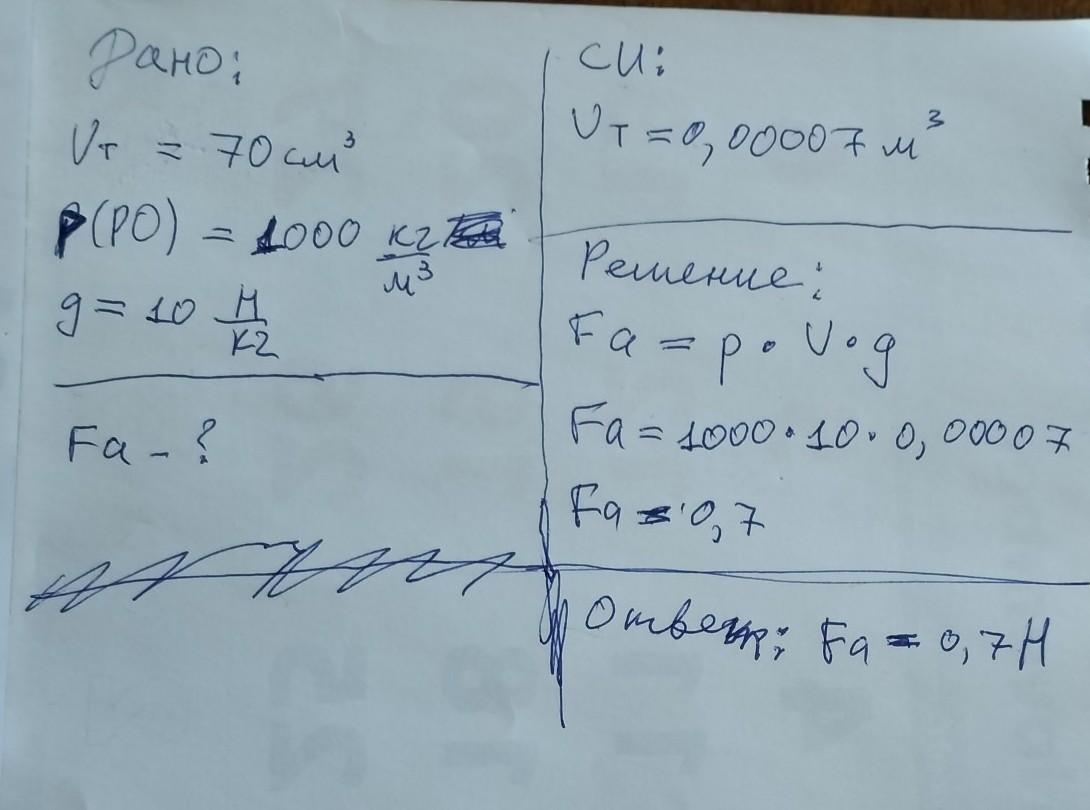 Дано:
Vт = 70 см³
р(РО) = 1000 кг/м³
g = 10 Н/кг
Fa - ?
СИ:
Vт = 0,00007 м³
Решение:
Fa = p · V · g
Fa = 1000 · 10 · 0,00007
Fa = 0,7
Ответ: Fa = 0,7 Н